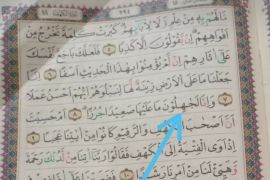 مَّا لَهُم بِهِۦ مِنْ عِلْمٍ وَلَا لِـَٔابَآئِهِمْ كَبُرَتْ كَلِمَةً تَخْرُجُ مِنْ
أَفْوَٰهِهِمْ إِن يَقُولُونَ إِلَّا كَذِبًا ٥ فَلَعَلَّكَ بَٰخِعٌ نَّفْسَكَ
عَلَىٰٓ ءَاثَٰرِهِمْ إِن لَّمْ يُؤْمِنُوا۟ بِهَٰذَا ٱلْحَدِيثِ أَسَفًا ٦ إِنَّا
جَعَلْنَا مَا عَلَى ٱلْأَرْضِ زِينَةً لَّهَا لِنَبْلُوَهُمْ أَيُّهُمْ أَحْسَنُ عَمَلًا
٧ وَإِنَّا لَجَٰهِلُونَ مَا عَلَيْهَا صَعِيدًا جُرُزًا ٨ أَمْ حَسِبْتَ
أَنَّ أَصْحَٰبَ ٱلْكَهْفِ وَٱلرَّقِيمِ كَانُوا۟ مِنْ ءَايَٰتِنَا عَجَبًا ٩
إِذْ أَوَى ٱلْفِتْيَةُ إِلَى ٱلْكَهْفِ فَقَالُوا۟ رَبَّنَآ ءَاتِنَا مِن لَّدُنكَ رَحْمَةً
وَهَيِّئْ لَنَا مِنْ أَمْرِنَا رَشَدًا